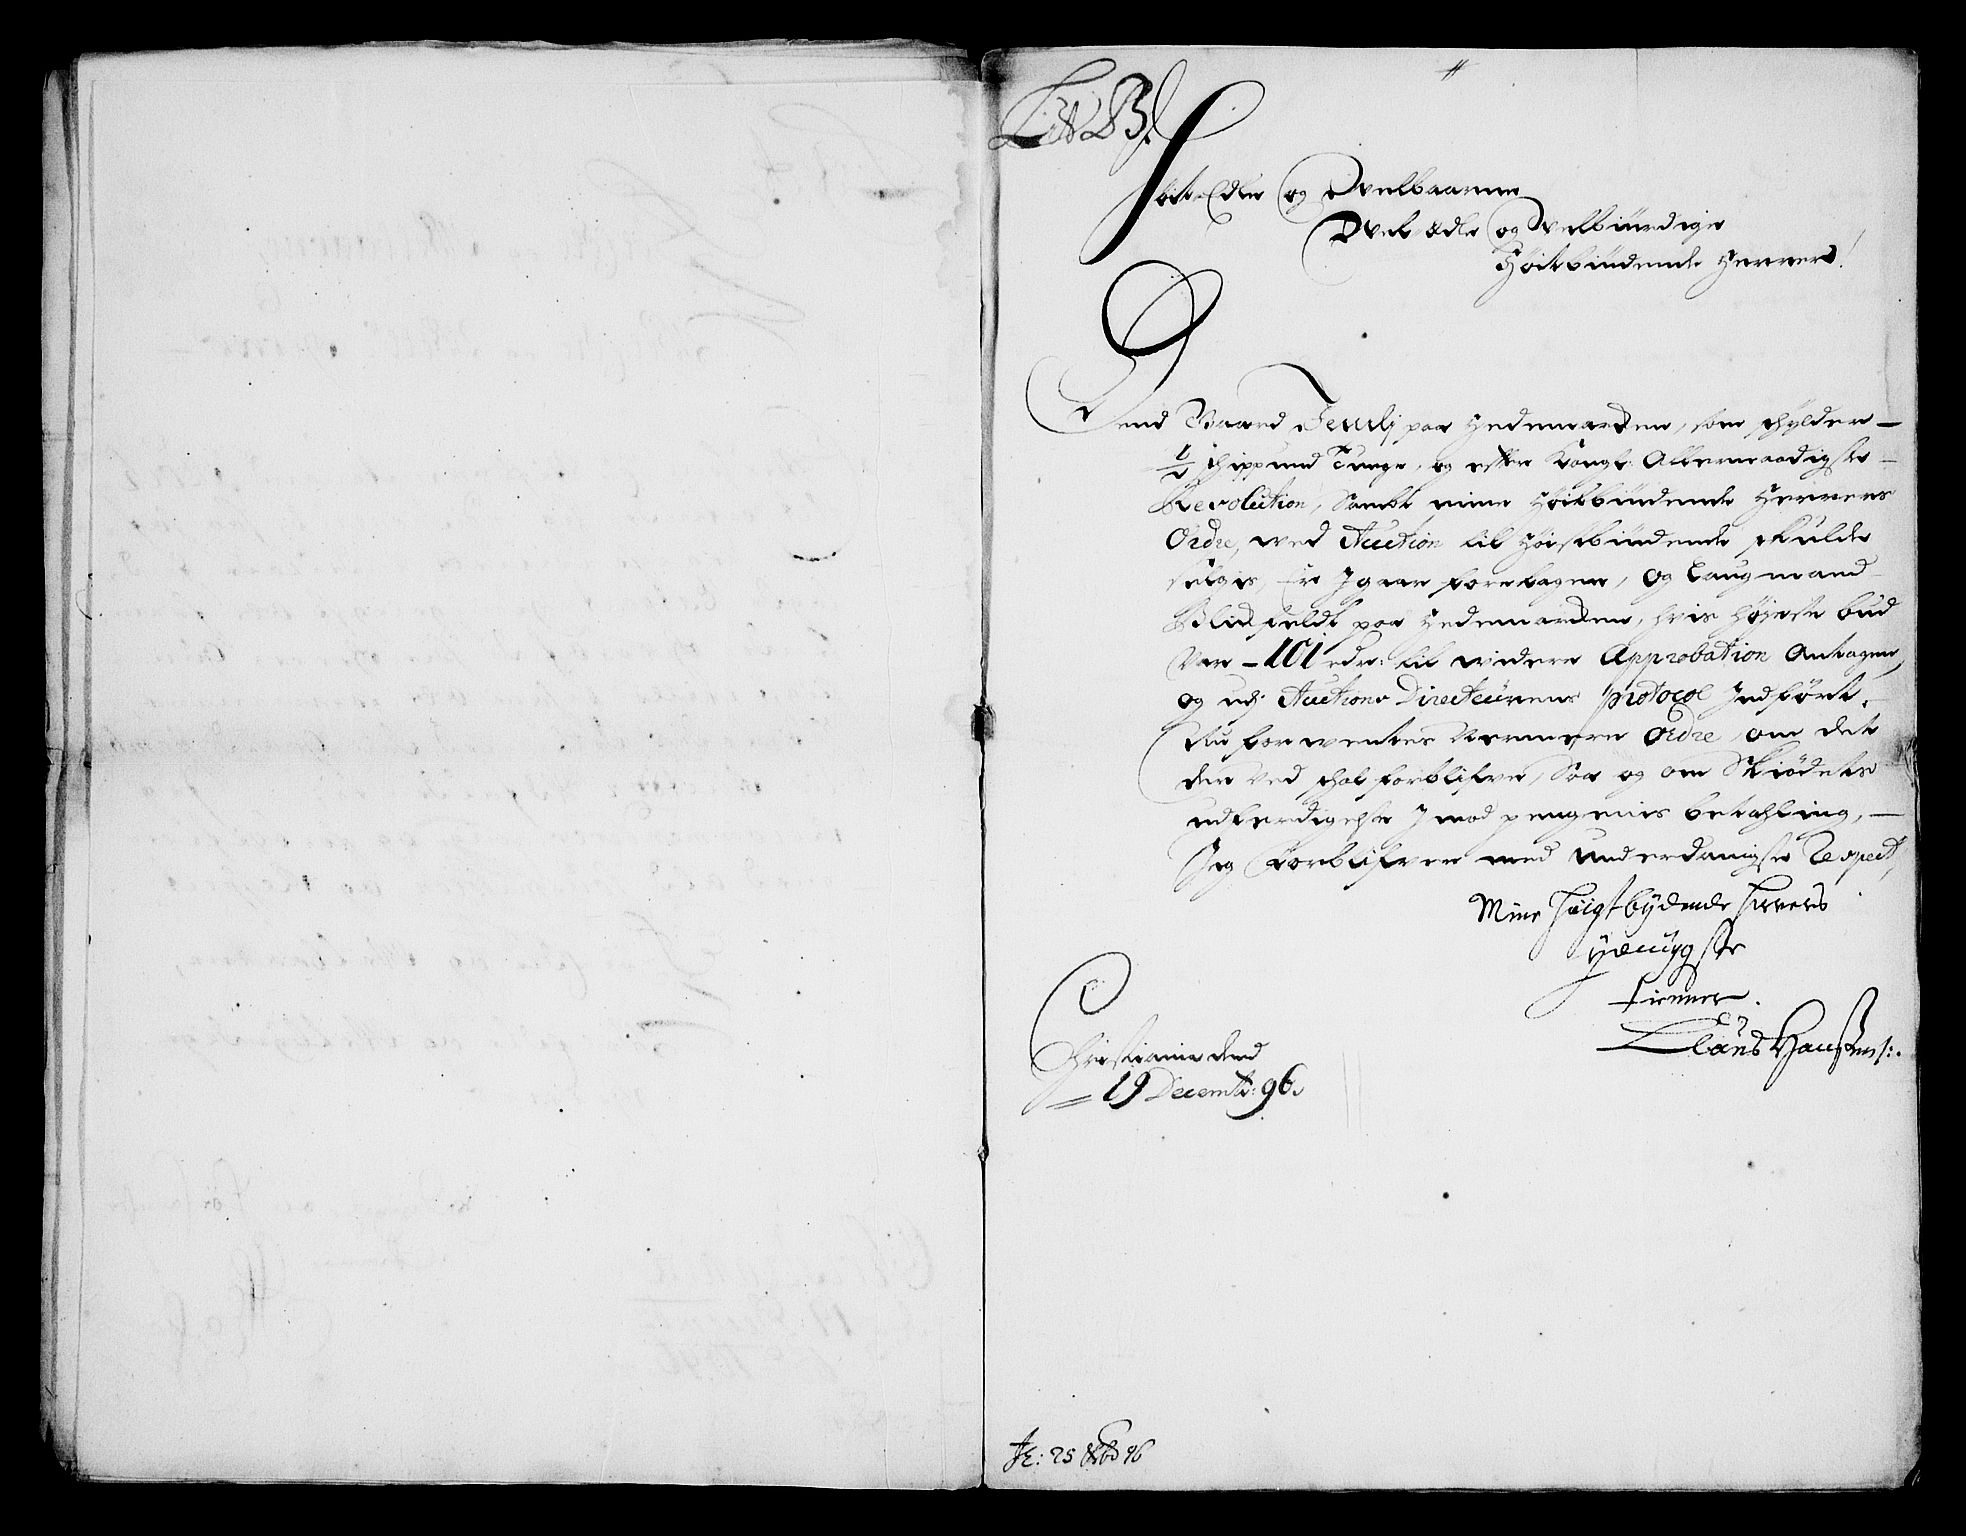 Lit B.
Høit Edle og Velbaarne
Vel Ædle og velbiurdige
Høitbiudende Herrer!
Dend Gaard Jeulj paa Hedemarcken, som schylder
½ schippund Tunge, og efter Kongl: Allernaadigste
Resolution, Samt mine Høitbiudende Herrers
Ordre, ved Auction til Høistbiudende skulde
selges, Er J gaar foretagen, og Laugmand
Blixfeldt paa Hedemarcken, hvis høyeste bud
var - 101 rdr: til videre Approbation Antagen,
og udj Auctions Directeurens Protocol Indført.
Nu forventes Nermere Ordre, om det
der ved schal forblifve, Saa og om Skiødets
udferdigelse J mod pengenis betahling,
Jeg forblifver med underdanigste Respect,
Mine høigstbydende herrers
ydmygste
tienner.
Claus Hansen
Christiania dend
19 Decembr: 96.
25 96